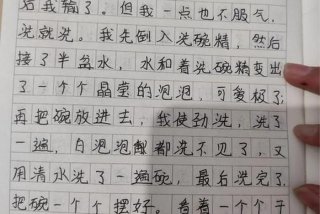 后我输了。但我一点也不服气,
洗就洗。我先倒入洗碗精,然后
接了半盆水,水和着洗碗精变出
了一个个晶莹的泡泡,可爱极了;
再把碗放进去,我使劲洗,洗了
一遍,白泡泡都洗不见了,又
用清水洗了一遍碗,最后洗完了,
把碗一个个摆好。看着一个个干